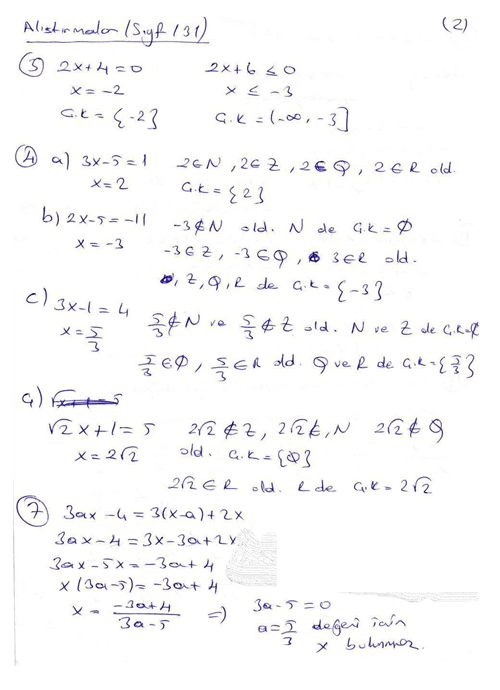 Alıştırmalar (Sayf 131) (2)
③ 2x+4=0 2x+6≤0
x=-2 x ≤ -3
Ç.K={-2} Ç.K=(-∞,-3]
④ a) 3x-5=1 2∈N, 2∈Z, 2∈Q, 2∈R old.
x=2 Ç.K={2}
b) 2x-5=-11 -3∉N old. N de Ç.K=∅
x=-3 -3∈Z, -3∈Q, 3∈R old.
, Z, Q, R de Ç.K={-3}
c) 3x-1=4 5/3∉N ve 5/3∉Z old. N ve Z de Ç.K=∅
x=5/3 5/3∈Q, 5/3∈R old. Q ve R de Ç.K={5/3}
Ç)
√2x+1=5 2√2∉Z, 2√2∉, N 2√2∉Q
x=2√2 old. Ç.K={∅}
2√2∈R old. R de Ç.K=2√2
⑦ 3ax-4=3(x-a)+2x
3ax-4=3x-3a+2x
3ax-5x=-3a+4
x(3a-5)=-3a+4
x= -3a+4/3a-5 => 3a-5=0
a=5/3 değeri için
x bulunmaz.